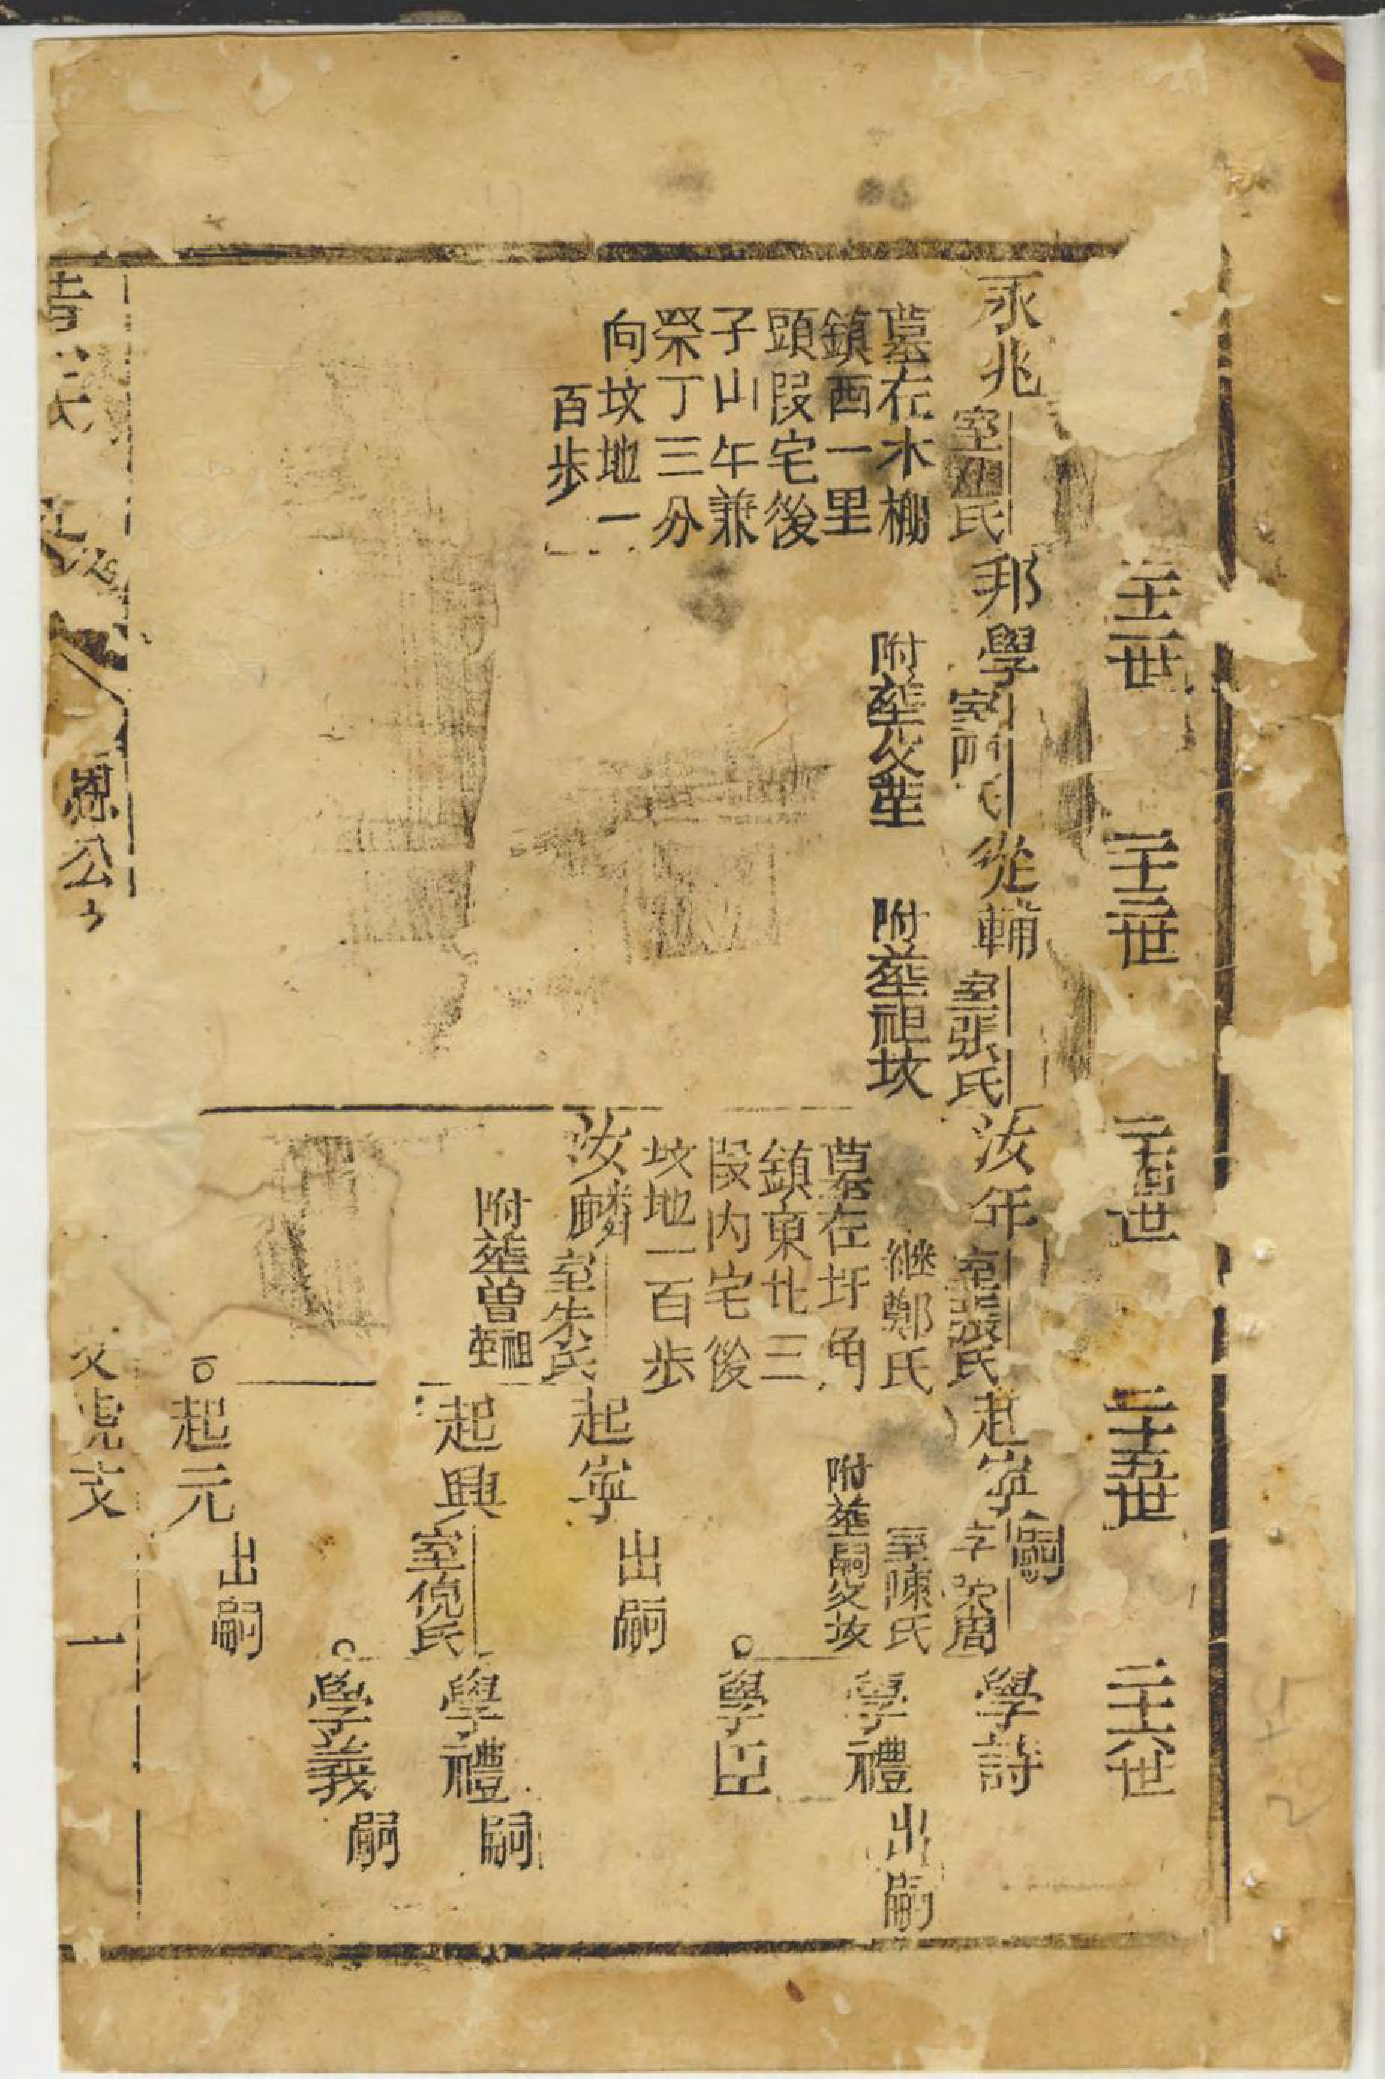 二十二世
二十三世
二十四世
二十五世
二十六世
永兆
室 氏
墓在木棚
鎮西一里
頭段宅後
子山午兼
癸丁三分
向坟地一
百歩
邦學
附塟父塋
從輔
室張氏
附塟祖坟
汝年
室張氏
継鄭氏
墓在圩角
鎮東北三
段内宅後
坟地一百歩
汝麟
室朱氏
附塟曽祖塋
起寧
嗣
室陳氏
附塟嗣父坟
起寧
出嗣
起興
室倪氏
起元
出嗣
學詩
學禮
出嗣
學臣
學禮
嗣
學義
嗣
恩公
支
一